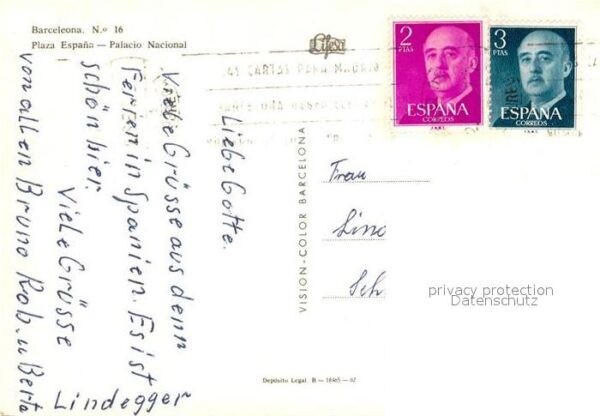 Barcelona. N.º 16
Plaza España — Palacio Nacional
2
PTAS
ESPAÑA
CORREOS
3
PTAS
ESPAÑA
CORREOS
CARTAS PARA MADRID
Liebe Gotte.
Viele Grüsse aus denn
Ferren in Spanien. Es ist
schön hier.
Viele Grüsse
von allen Bruno Rob. u Berta
Lindegger
VISION-COLOR BARCELONA
Frau
Lin
Sch
privacy protection
Datenschutz
Depósito Legal B